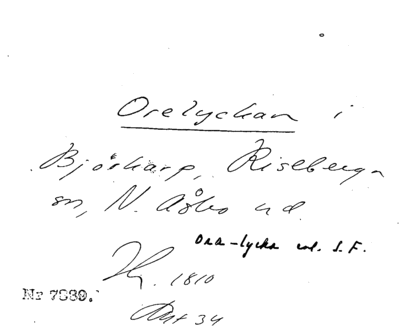 Orelyckan i
Bjöskarp, Riseberga
sn, N. Åsbo hd.
Ora-lycka enl. S.F.
Hy. 1810
Nr 7889.
Akt 34